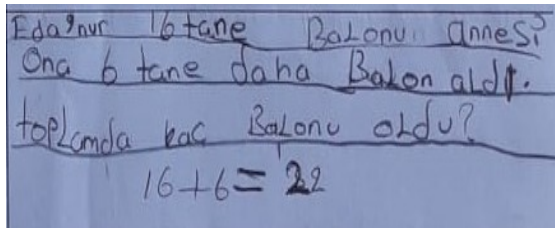 Eda'nur 16 tane Balonu annesi
Ona 6 tane daha Balon aldı.
topLamda kac BaLonu oLdu?
16+6=22